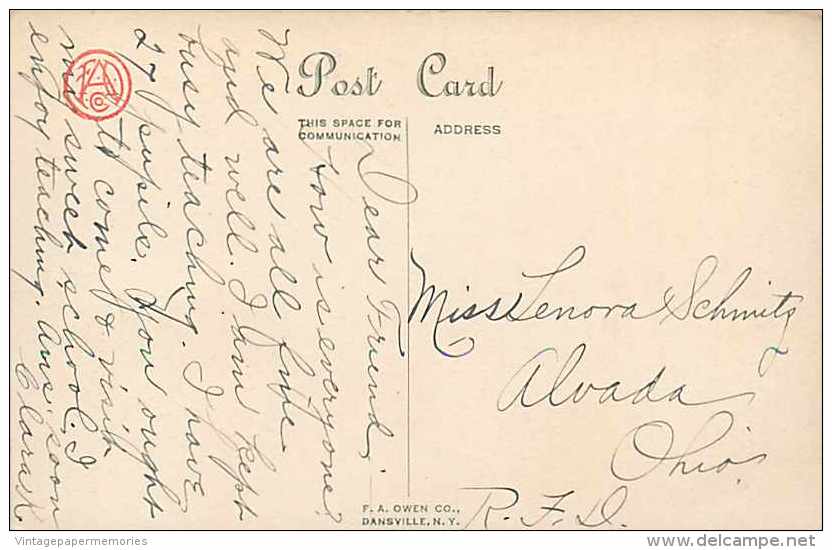 Post Card
THIS SPACE FOR
COMMUNICATION
ADDRESS
Dear Friend,
How is everyone?
We are all fine
and well. I am kept
busy teaching. I have
27 pupils. You ought
to come & visit
my sweet school. I
enjoy teaching. Ans. soon
Clara K
Miss Lenora Schmitz
Alvada
Ohio
R.F.D.
F. A. OWEN CO.,
DANSVILLE, N. Y.
Vintagepapermemories
delcampe.net